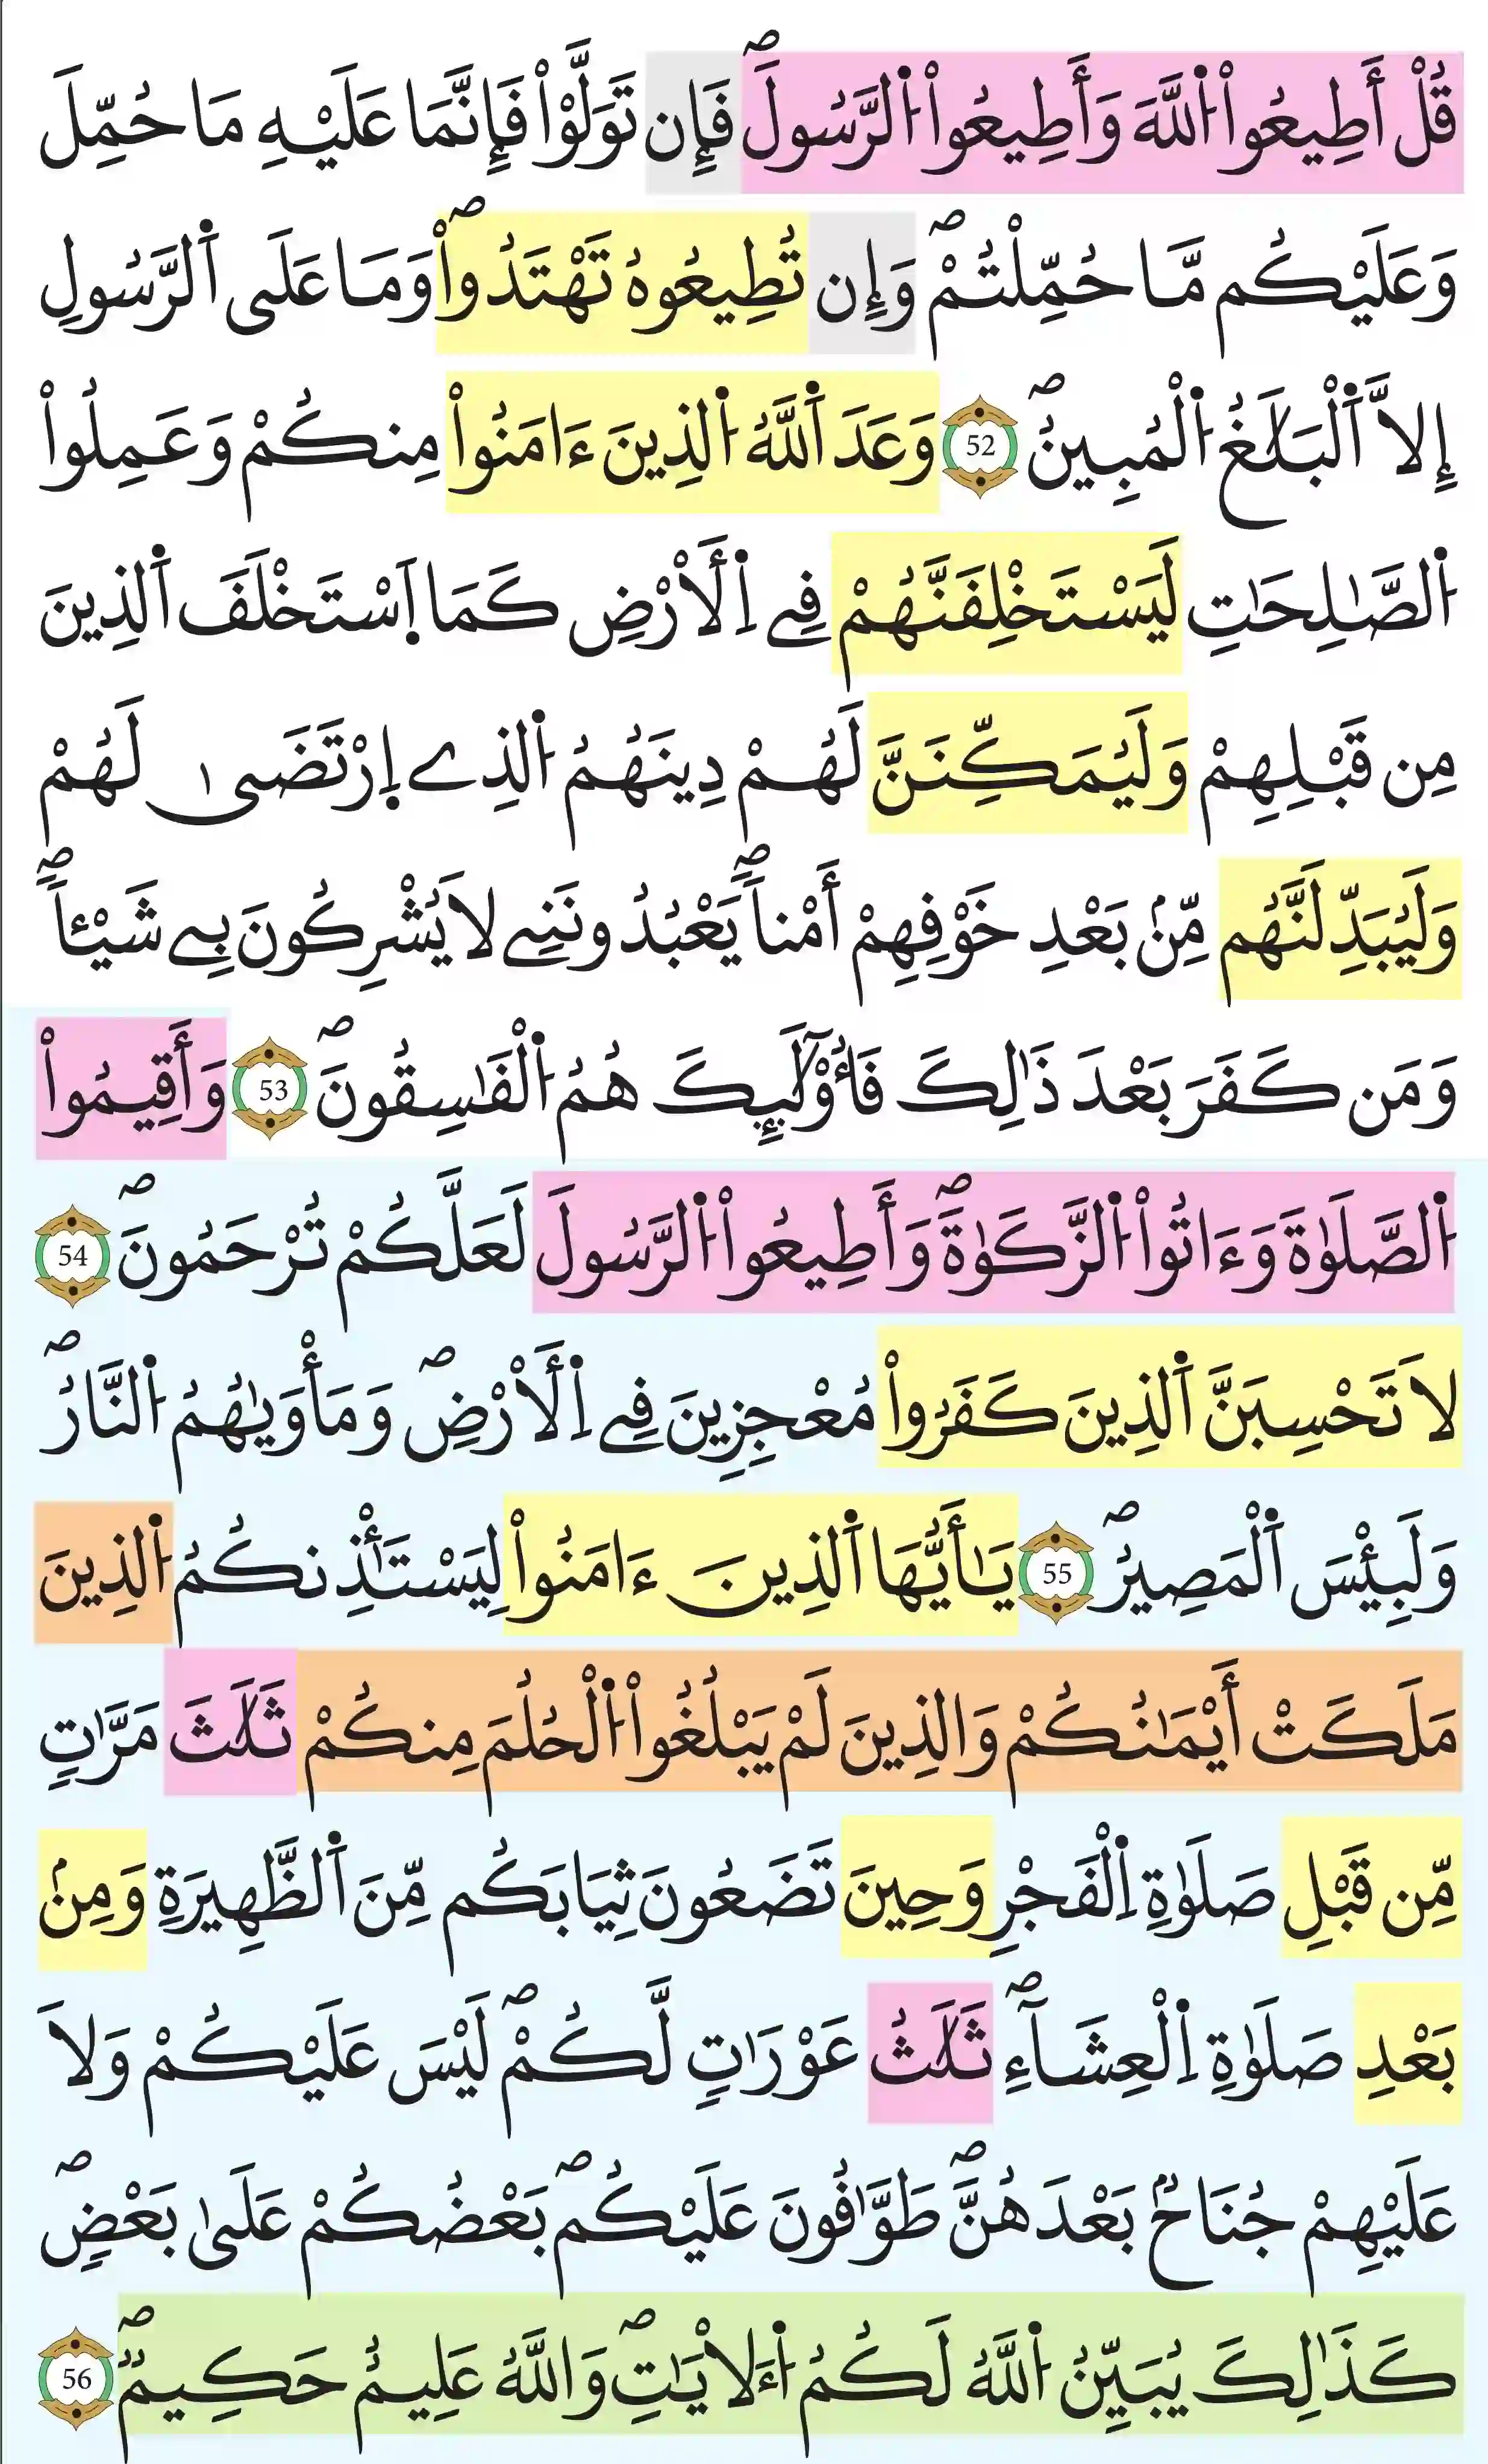 قُلْ أَطِيعُواْ اُ۬للَّهَ وَأَطِيعُواْ اُ۬لرَّسُولَۖ فَإِن تَوَلَّوْاْ فَإِنَّمَا عَلَيْهِ مَا حُمِّلَ
وَعَلَيْكُم مَّا حُمِّلْتُمْۖ وَإِن تُطِيعُوهُ تَهْتَدُواْۖ وَمَا عَلَى اَ۬لرَّسُولِ
إِلَّا اَ۬لْبَلَٰغُ اُ۬لْمُبِينُۖ 52 وَعَدَ اَ۬للَّهُ اُ۬لذِينَ ءَامَنُواْ مِنكُمْ وَعَمِلُواْ
اُ۬لصَّٰلِحَٰتِ لَيَسْتَخْلِفَنَّهُمْ فِے اِ۬لَارْضِ كَمَا اَ۪سْتَخْلَفَ اَ۬لذِينَ
مِن قَبْلِهِمْ وَلَيُمَكِّنَنَّ لَهُمْ دِينَهُمُ اُ۬لذِے اِ۪رْتَضَىٰ لَهُمْ
وَلَيُبَدِّلَنَّهُم مِّنۢ بَعْدِ خَوْفِهِمْ أَمْناٗۖ يَعْبُدُونَنِے لَا يُشْرِكُونَ بِے شَيْـٔاٗۖ
وَمَن كَفَرَ بَعْدَ ذَٰلِكَ فَأُوْلَٰٓئِكَ هُمُ اُ۬لْفَٰسِقُونَۖ 53 وَأَقِيمُواْ
اُ۬لصَّلَوٰةَ وَءَاتُواْ اُ۬لزَّكَوٰةَۖ وَأَطِيعُواْ اُ۬لرَّسُولَ لَعَلَّكُمْ تُرْحَمُونَۖ 54
لَا تَحْسِبَنَّ اَ۬لذِينَ كَفَرُواْ مُعْجِزِينَ فِے اِ۬لَارْضِۖ وَمَأْوَيٰهُمُ اُ۬لنَّارُۖ
وَلَبِئْسَ اَ۬لْمَصِيرُۖ 55 يَٰأَيُّهَا اَ۬لذِينَ ءَامَنُواْ لِيَسْتَـْٔذِنكُمُ اُ۬لذِينَ
مَلَكَتْ أَيْمَٰنُكُمْ وَالذِينَ لَمْ يَبْلُغُواْ اُ۬لْحُلُمَ مِنكُمْ ثَلَٰثَ مَرَّٰتٖ
مِّن قَبْلِ صَلَوٰةِ اِ۬لْفَجْرِ وَحِينَ تَضَعُونَ ثِيَابَكُم مِّنَ اَ۬لظَّهِيرَةِ وَمِنۢ
بَعْدِ صَلَوٰةِ اِ۬لْعِشَآءِۖ ثَلَٰثُ عَوْرَٰتٖ لَّكُمْۖ لَيْسَ عَلَيْكُمْ وَلَا
عَلَيْهِمْ جُنَاحُۢ بَعْدَهُنَّۖ طَوَّٰفُونَ عَلَيْكُمۖ بَعْضُكُمْ عَلَىٰ بَعْضٖۖ
كَذَٰلِكَ يُبَيِّنُ اُ۬للَّهُ لَكُمُ اُ۬لَايَٰتِۖ وَاللَّهُ عَلِيمٌ حَكِيمٞۖ 56